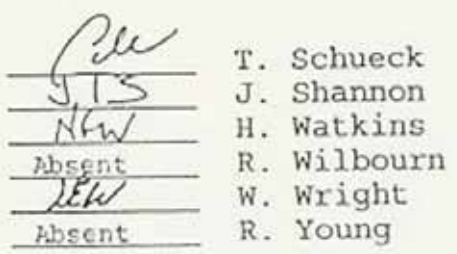 T. Schueck
JTS J. Shannon
HFW H. Watkins
Absent R. Wilbourn
W. Wright
Absent R. Young